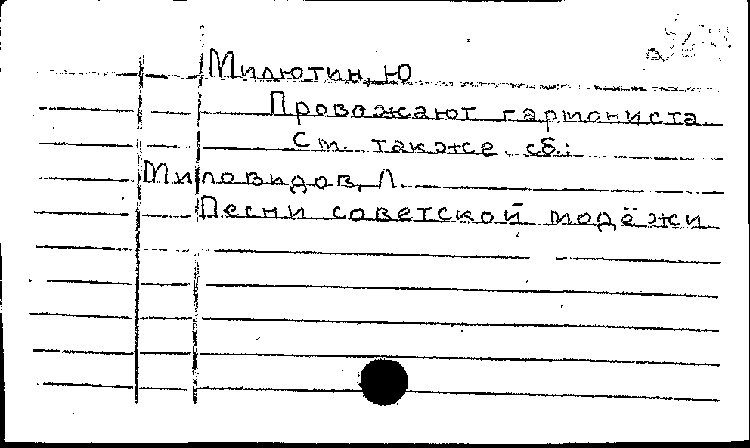 Милютин, Ю
Провожают гармониста.
См. также сб.:
Миловидов, Л.
Песни советской модёжи